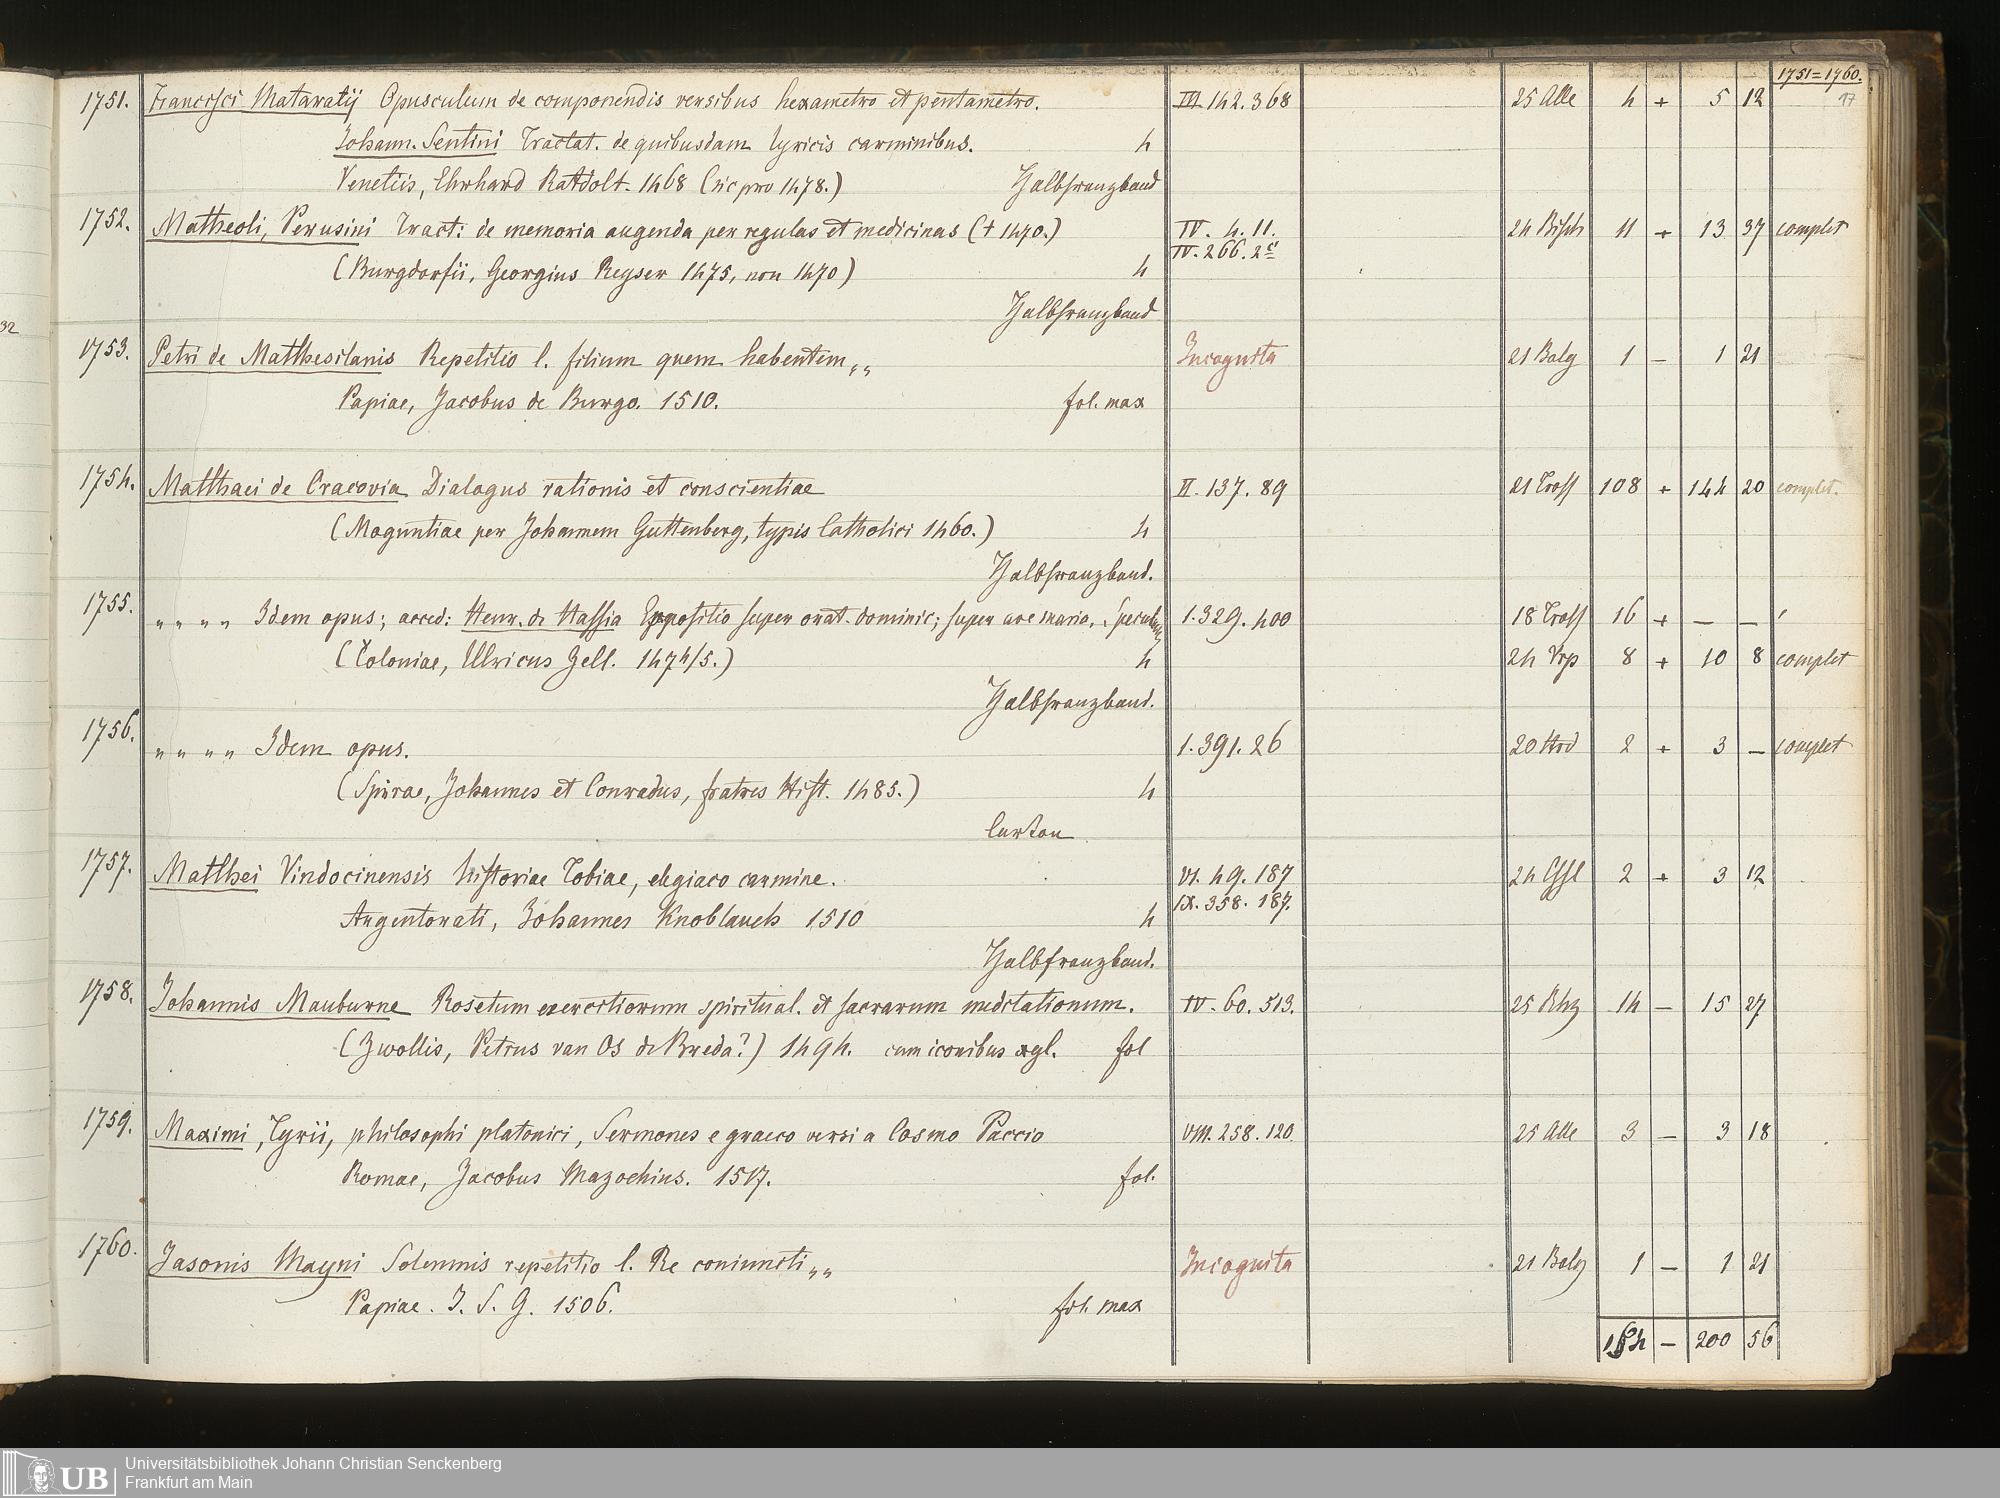 1751=1760.
17
1751. Francisci Mataratij Opusculum de componendis versibus hexametro et pentametro. III 142. 368 25 Alle 4 + 5 12
Johann. Sentini Tractat. de quibusdam lyricis carminibus. 4
Venetiis, Ehrhard Ratdolt 1468 (sic pro 1478.) Halbfranzband
1752. Matheoli, Perusini Tract: de memoria augenda per regulas et medicinas († 1470.) IV. 4. 11. 24 Bisch 11 + 13 37 complet
IV. 266. 2
(Burgdorfii, Georgius Reyser 1475, non 1470) 4
Halbfranzband
32
1753. Petri de Matthesilanis Repetitio l. filium quem habentem „„ Incognita 21 Balg 1 – 1 21
Papiae, Jacobus de Burgo. 1510. fol. max
1754. Matthaei de Cracovia Dialogus rationis et conscientiae II. 137. 89 21 Tross 108 + 144 20 complet.
(Moguntiae per Johannem Guttenberg, typis Catholici 1460.) 4
Halbfranzband.
1755. „ „ „ „ Idem opus; acced: Henr. de Hassia Expositio super orat. dominic; super ave maria, Speculum 1. 329. 400 18 Tross 16 + – –
(Coloniae, Ulricus Zell. 1474/5.) 4 24 Trp 8 + 10 8 complet
Halbfranzband.
1756. „ „ „ „ Idem opus. 1. 391. 26 20 Hrd 2 + 3 – complet
(Spirae, Johannes et Conradus, fratres Hist. 1485.) 4
Carton
1757. Matthei Vindocinensis historiae Tobiae, elegiaco carmine. VI. 49. 187 24 2 + 3 12
IX. 358. 187.
Argentorati, Johannes Knoblauch 1510 4
Halbfranzband.
1758. Johannis Mauburne Rosetum exercitiorum spiritual. et sacrarum meditationum. IV. 60. 513. 25 14 – 15 27
(Zwollis, Petrus van Os de Breda?) 1494. cum iconibus xyl. fol
1759. Maximi, Tyrii, philosophi platonici, Sermones e graeco versi a Cosmo Paccio VIII. 258. 120. 25 Alle 3 – 3 18
Romae, Jacobus Mazochius. 1517. fol.
1760. Jasonis Mayni Solemnis repetitio l. Re coniuncti „„ Incognita 21 Balg 1 – 1 21
Papiae. J. S. G. 1506. fol. max
164 – 200 56
UB Universitätsbibliothek Johann Christian Senckenberg
Frankfurt am Main